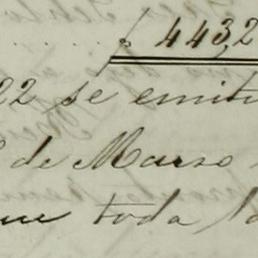 443,2
22 se emitu
de Marzo
que toda la